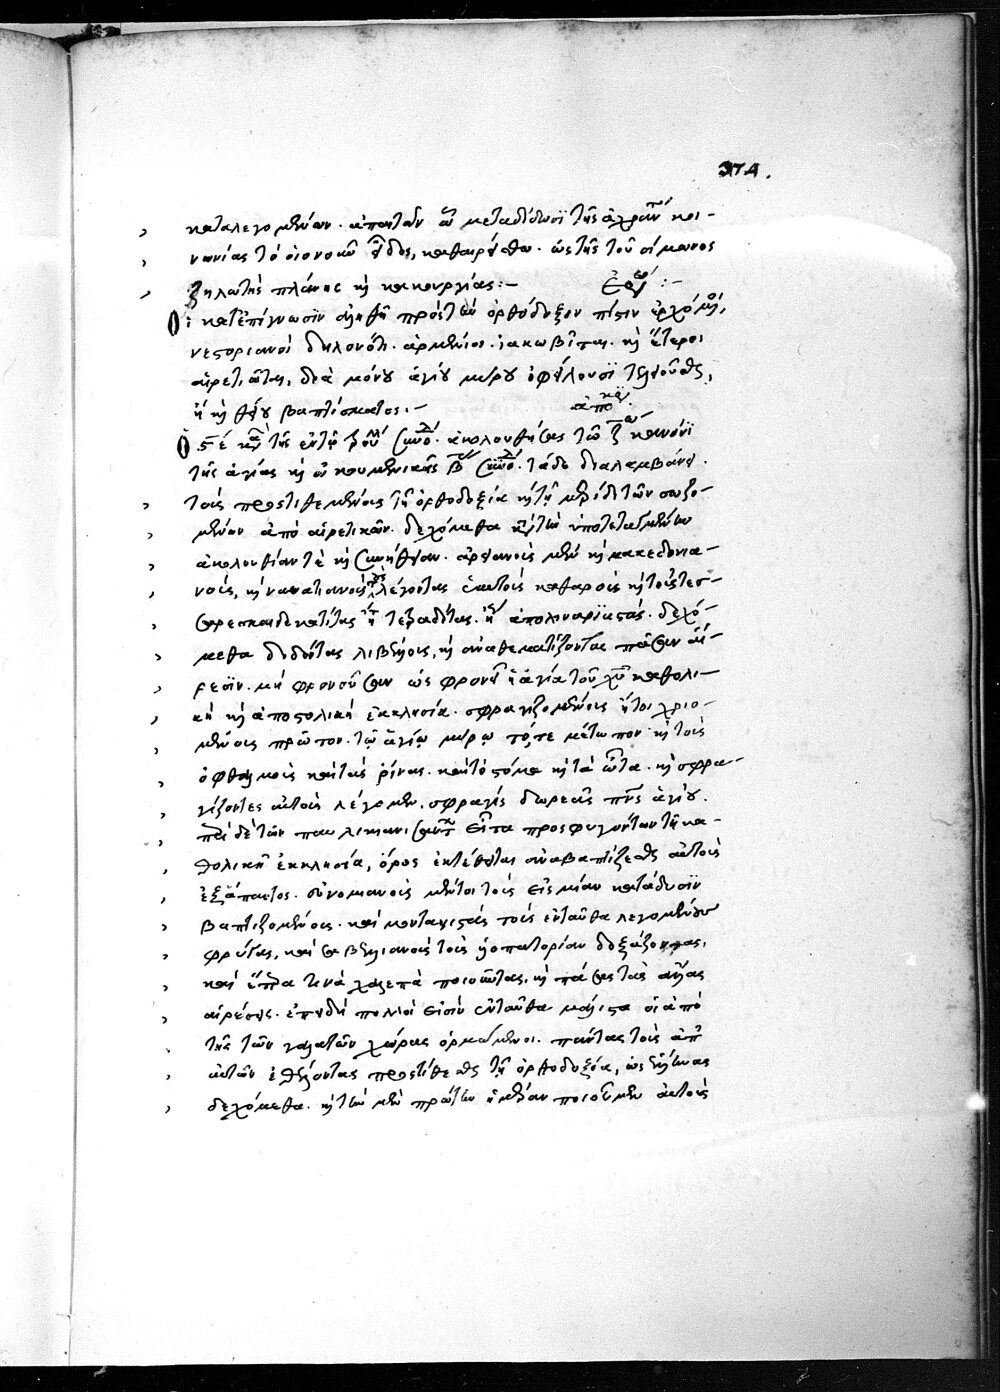 374.
καταλεγομένων. ἀπαιτῶν ἐν μεταδόσει τῆς ἀχράντου κοι-
νωνίας τὸ οἱονοῦν εἶδος, καθαιρείσθω. ὡς τῆς τοῦ σίμωνος
ζηλωτὴς πλάνης καὶ κακουργίας:-
Οἱ κατεπίγνωσϊν ἀληθῆ πρὸς τὴν ὀρθόδοξον πίστιν ἐρχόμενοι,
νεστοριανοὶ δηλονότι. ἀρμένιοι. ἰακωβῖται. καὶ ἕτεροι
αἱρετιῶται, διὰ μόνου ἁγίου μύρου ὀφείλουσϊ τελειοῦσθαι,
ἢ καὶ θείου βαπτίσματος:-
τῆς ἁγίας καὶ οἰκουμενικῆς β συνόδου. τάδε διαλαμβάνει.
τοὺς προστιθεμένους τῇ ὀρθοδοξία καὶ τῇ μερίδι τῶν σωζο-
μένων ἀπὸ αἱρετικῶν. δεχόμεθα κατὰ τὴν ὑποτεταγμένην
ἀκολουθίαν τὲ καὶ συνήθειαν. ἀρειανοὺς μὲν καὶ μακεδονια-
νούς, καὶ ναυατιανοὺς τοὺς λέγοντας ἑαυτοὺς καθαροὺς καὶ τοὺς τεσ-
σαρεσκαιδεκατίτας ἤτοι τετραδίτας. καὶ ἀπολιναρϊαστάς. δεχό-
μεθα διδόντας λιβέλλους, καὶ ἀναθεματίζοντας πᾶσαν αἵ-
ρεσϊν. μὴ φρονοῦσαν ὡς φρονεῖ ἡ ἁγία τοῦ θεοῦ καθολι-
κὴ καὶ ἀποστολικὴ ἐκκλησία. σφραγιζομένους ἤτοι χριο-
μένους πρῶτον. τῷ ἁγίῳ μύρῳ τό,τε μέτωπον καὶ τοὺς
ὀφθαλμοὺς καὶ τὰς ῥίνας. καὶ τὸ στόμα καὶ τὰ ὦτα. καὶ σφρα-
γίζοντες αὐτοὺς λέγομεν. σφραγὶς δωρεᾶς πνεύματος ἁγίου.
περὶ δὲ τῶν παυλικιανισάντων εἶτα προσφυγόντων τῇ κα-
θολικῇ ἐκκλησία, ὅρος ἐκτέθειται ἀναβαπτίζεσθαι αὐτοὺς
ἐξάπαντος. εὐνομιανοὺς μέντοι τοὺς εἰς μίαν κατάδυσϊν
βαπτιζομένους. καὶ μοντανιστὰς τοὺς ἐνταῦθα λεγομένους
φρύγας, καὶ σαβελλιανοὺς τοὺς υἱοπατορίαν δοξάζοντας,
καὶ ἕτερα τινὰ χαλεπὰ ποιοῦντας, καὶ πάσας τὰς ἄλλας
αἱρέσεις. ἐπειδὴ πολλοὶ εἰσὶν ἐνταῦθα μάλιστα οἱ ἀπὸ
τῆς τῶν γαλατῶν χώρας ὁρμώμενοι. πάντας τοὺς ἀπ
αὐτῶν ἐθέλοντας προστίθεσθαι τῇ ὀρθοδοξία, ὡς ἕλληνας
δεχόμεθα. καὶ τὴν μὲν πρώτην ἡμέραν ποιοῦμεν αὐτοὺς